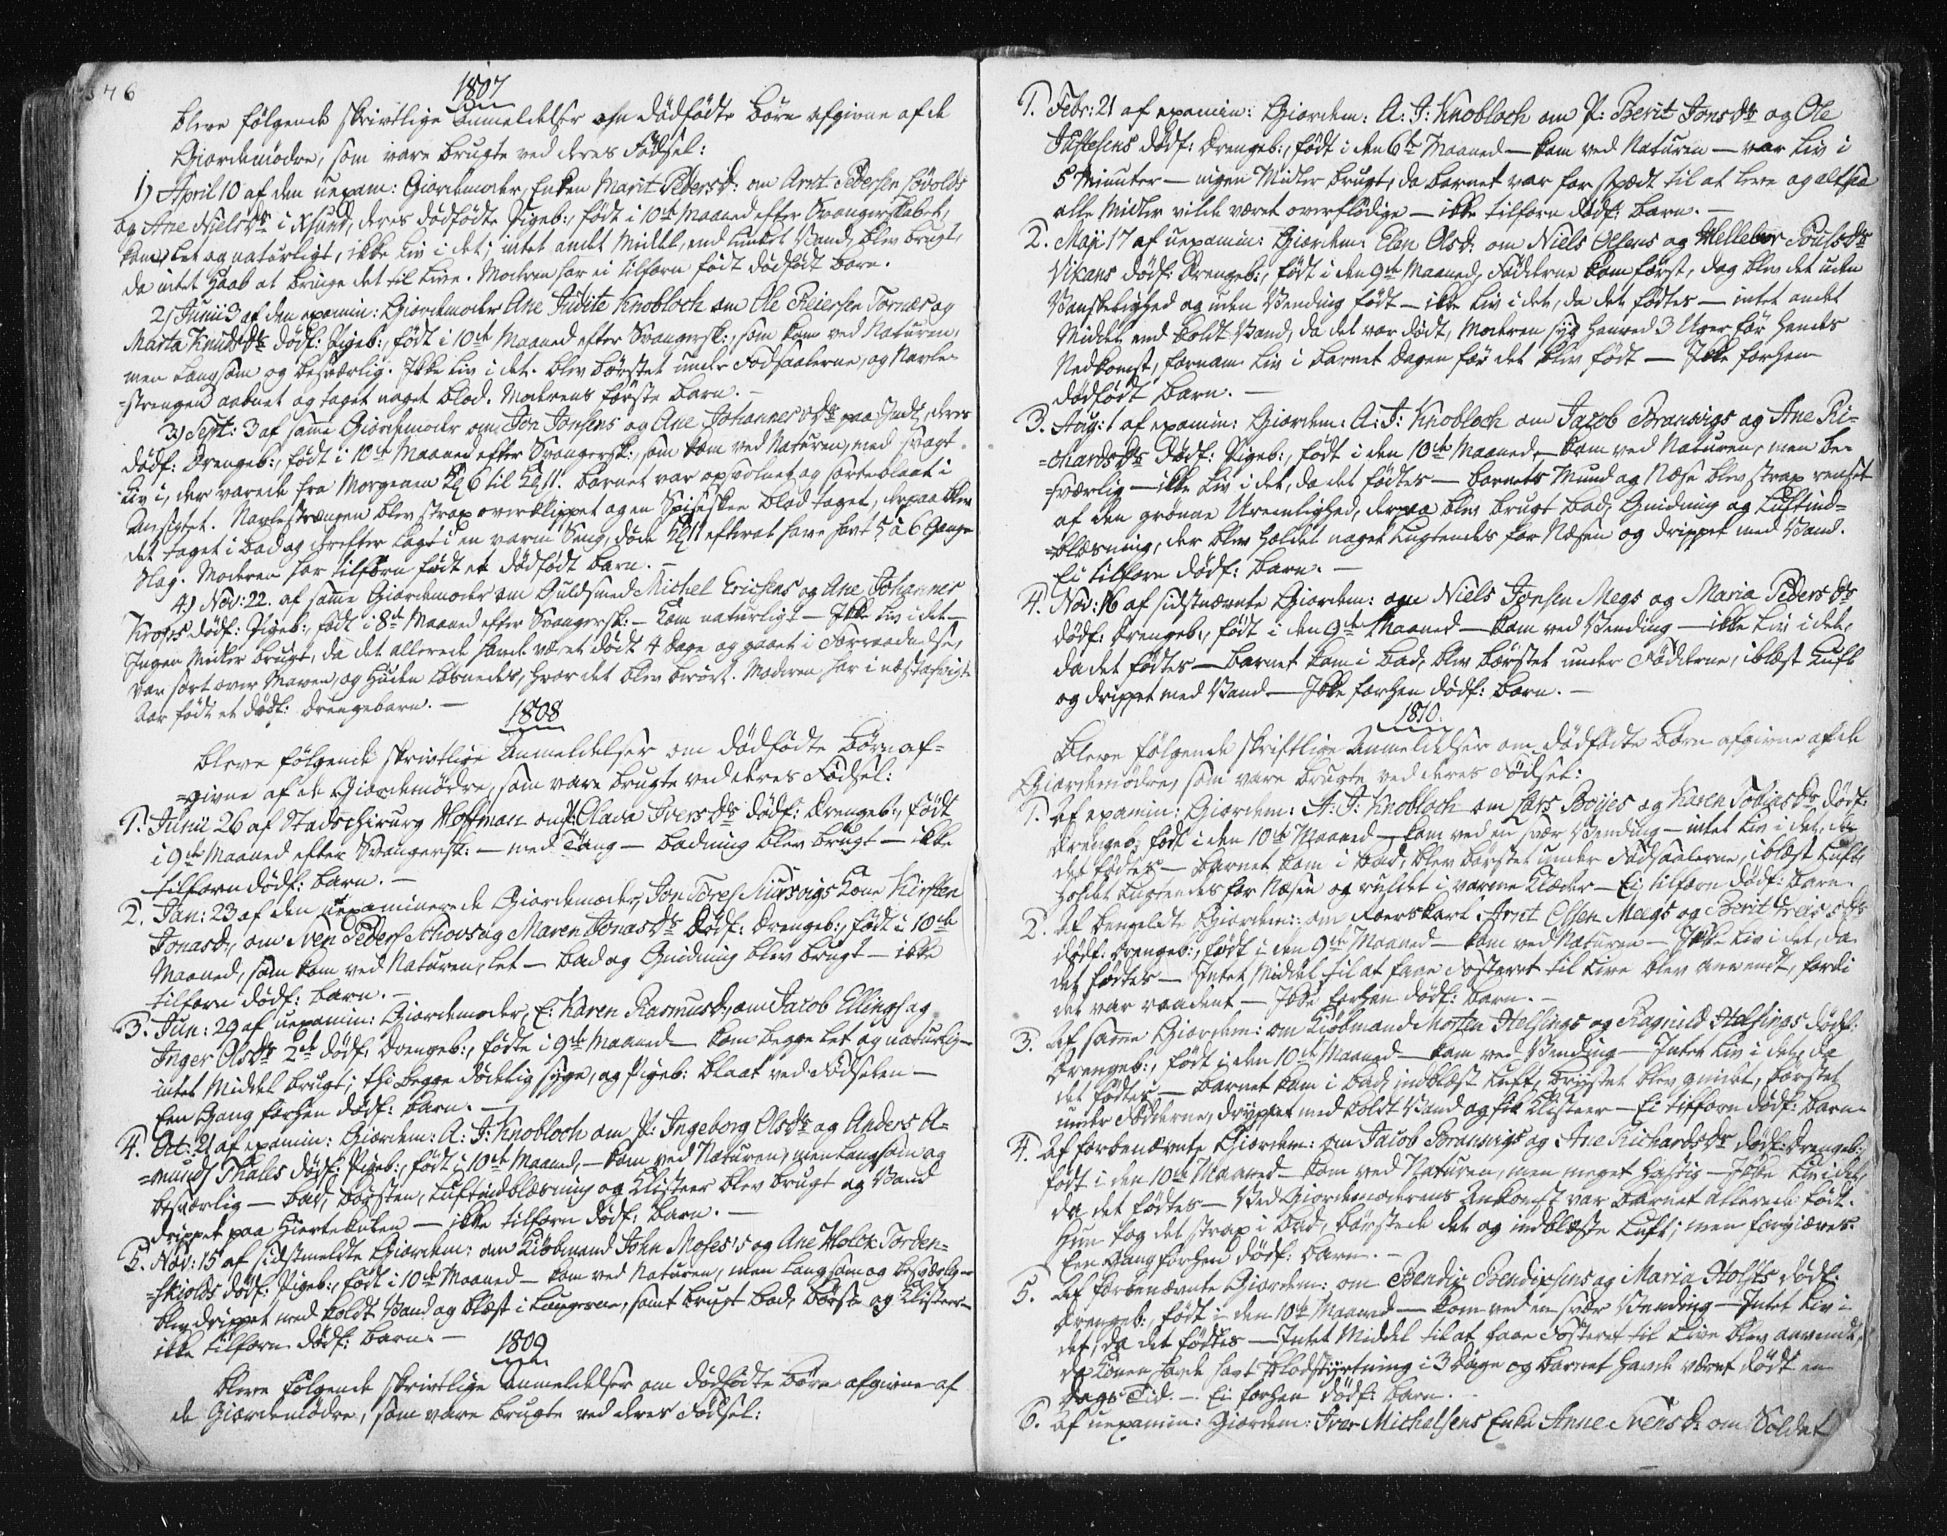 346
1807
bleve følgende skrivtlige Anmeldelser om dødfødte Børn afgivne af de
Giordemødre, som vare brugte ved deres Fødsel:
1) April 10 af den uexam: Giordemoder, Enken Marit Pedersd: om Arnt Pedersen Løvolds
og Ane Nielsdr i Xsund, deres dødfødte Pigeb:, født i 10de Maaned efter Svangerskabet,
kom let og naturligt, ikke Liv i det; intet andt Middel, end lunket Vand, blev brugt,
da intet Haab at bringe det til Live. Moderen har ei tilforn født dødfødt Barn.
2) Junii 3 af den examin: Giordemoder Ane Judite Knobloch om Ole Reiersen Tornæs og
Marta Knudsdr dødf: Pigeb:, født i 10de Maaned efter Svangersk:, som kom ved Naturen,
men langsom og besværlig. Ikke Liv i det. blev børstet under Fodsaalerne, og Navle-
=strengen aabnet og taget noget Blod. Moderens første Barn. —
3) Sept: 3 af samme Giordemoder om Jon Jonsens og Ane Johannesdr paa Indl, deres
dødf: Drengeb:, født i 10de Maaned efter Svangersk:, som kom ved Naturen, med svagt
Liv i, der varede fra Morgenen Kl 6 til Kl 11. Barnet var opsvolnet og sorteblaat i
Ansigtet. Navlestrængen blev strax overklippet og en Spiseskee Blod taget, derpaa blev
det taget i Bad og derefter lagt i en varm Seng, døde Kl 11 efterat have havt 5 à 6 Gange
Slag. Moderen har tilforn født et dødfødt Barn. —
4) Nov: 22. af samme Giordemoder om Guldsmed Michel Erichsens og Ane Johannes
Krofts dødf: Pigeb:, født i 8de Maaned efter Svangersk: — Kom naturligt — Ikke Liv i det —
Ingen Midler brugt, da det allerede havde været dødt 4 Dage og gaaet i Forraadnelse,
var sort over Maven, og Huden løsnedes, hvor det blev berørt. Moderen har i næstafvigte
Aar født et dødf: Drengebarn. —
1808
bleve følgende skrivtlige Anmeldelser om dødfødte Børn af-
=givne af de Giordemødre, som vare brugte ved deres Fødsel:
1. Junii 26 af Stadschirurg Hoffman om P: Olava Iversdr dødf: Drengeb:, født
i 9de Maaned efter Svangersk: — med Tang — Badning blev brugt — ikke
tilforn dødf: Barn. —
2. Jan: 23 af den uexaminerede Giordemoder, Jon Toresf Kursvigs Kone Kirsten
Jonasd:, om Sven Pedersf Schovs og Maren Jonasdr dødf: Drengeb:, født i 10de
Maaned, som kom ved Naturen, let — Bad og Gnidning blev brugt — ikke
tilforn dødf: Barn. —
3. Jun: 29 af uexamin: Giordemoder, E: Karen Rasmusd:, om Jacob Ellings og
Inger Olsdr 2de dødf: Drengeb:, fødte i 9de Maaned — kom begge let og naturlig —
intet Middel brugt; thi begge dødelig syge, og Pigeb: blaat ved Fødselen —
Een Gang forhen dødf: Barn. —
4. Oct: 21 af examin: Giordem: A: J: Knobloch om P: Ingeborg Olsdr og Anders A-
=munds Thales dødf: Pigeb:, født i 10de Maaned, — kom ved Naturen, men langsom og
besværlig — Bad, Børsten, Luftindblæsning og Klisteer blev brugt og Vand
drippet paa Hiertekulen — ikke tilforn dødf: Barn. —
5. Nov: 15 af sidstmeldte Giordem: om Kiöbmand John Moses's og Ane Holck Torden-
=skiolds dødf: Pigeb:, født i 10de Maaned — kom ved Naturen, men langsom og besværlig —
blev drippet med koldt Vand og blæst i Lungerne, samt brugt Bad, Børste og Klisteer —
ikke tilforn dødf: Barn. —
1809
bleve følgende skrivtlige Anmeldelser om dødfødte Børn afgivne af
de Giordemødre, som vare brugte ved deres Fødsel:
1. Febr: 21 af examin: Giordem: A: J: Knobloch om P: Berit Jonsdr og Ole
Justesens dødf: Drengeb:, født i den 6te Maaned — kom ved Naturen — var Liv i
5 Minuter — ingen Midler brugt, da Barnet var for spædt til at leve og altsaa
alle Midler vilde været overflødige — ikke tilforn dødf: Barn. —
2. Maji 17 af uexamin: Giordem: Elen Olsd: om Niels Olsens og Mellebor Poulsdr
Vikans dødf: Drengeb:, født i den 9de Maaned, Fødderne kom først, dog blev det uden
Vanskelighed og uden Vending født — ikke Liv i det, da det fødtes — intet andet
Middel end koldt Vand, da det var dødt, Moderen syg henved 3 Uger før hendes
Nedkomst, fornam Liv i Barnet Dagen før det blev født — Ikke forhen
dødfødt Barn. —
3. Aug: 1 af examin: Giordem: A: J: Knobloch om Jacob Bransvigs og Ane Ri-
=chardsdr dødf: Pigeb:, født i den 10de Maaned, — kom ved Naturen, men be-
=sværlig — ikke Liv i det, da det fødtes — Barnets Mund og Næse blev strax renset
af den grønne Ureenlighed, derpaa blev brugt Bad, Gnidning og Luftind-
=blæsning, der blev holdet noget lugtendes for Næsen og drippet med Vand.
Ei tilforn dødf: Barn. —
4. Nov: 16 af sidstnævnte Giordem: om Niels Jonsen Megs og Maria Pedersdr
dødf: Drengeb:, født i den 9de Maaned — kom ved Vending — ikke Liv i det,
da det fødtes — Barnet kom i Bad, blev børstet under Fødderne, iblæst Luft
og drippet med Vand — Ikke forhen dødf: Barn. —
1810.
bleve følgende skriftlige Anmeldelser om dødfødte Børn afgivne af de
Giordemødre, som vare brugte ved deres Fødsel:
1. Af examin: Giordem: A: J: Knobloch om Lars Boyes og Karen Tobiasdr dødf:
Drengeb: født i den 10de Maaned — kom ved en svær Vending — intet Liv i det, da
det fødtes — Barnet kom i Bad, blev børstet under Fodsaalerne, iblæst Luft,
holdet lugtendes for Næsen og rullet i varme Klæder — Ei tilforn dødf: Barn.
2. Af bemeldte Giordem: om Kaarskarl Arnt Olsen Meegs og Berit Dreiersdr
dødf: Drengeb:, født i den 9de Maaned — kom ved Naturen — Ikke Liv i det, da
det fødtes — Intet Middel til at faae Fosteret til Live blev anvendt, fordi
det var raadent — Ikke forhen dødf: Barn. —
3. Af samme Giordem: om Kiöbmand Morten Helsings og Ragnild Helsings dødf:
Drengeb:, født i den 10de Maaned — kom ved Vending — Intet Liv i det, da
det fødtes — Barnet kom i Bad, indblæst Luft, Brystet blev gnidet, børstet
under Fødderne, dryppet med koldt Vand og fik Klisteer — Ei tilforn dødf: Barn.
4. Af forbenævnte Giordem: om Jacob Bransvigs og Ane Richardsdr dødf: Drengeb:,
født i den 10de Maaned — kom ved Naturen, men meget hastig — Ikke Liv i det,
da det fødtes — Ved Giordemoderens Ankomst var Barnet allerede født.
Hun tog det strax i Bad, børstede det og indblæste Luft; men forgiæves.
Een Gang forhen dødf: Barn. —
5. Af forbenævnte Giordem: om Bendix Bendixsens og Maria Holsts dødf:
Drengeb:, født i den 10de Maaned — kom ved en svær Vending — Intet Liv i
det, da det fødtes — Intet Middel til at faae Fosteret til Live blev anvendt,
da Konen havde havt Blodstyrtning i 3 Dage og Barnet havde været dødt en
Dags Tid. — Ei forhen dødf: Barn. —
6. Af uexamin: Giordem: Iver Michelsens Enke Anne Svensd: om Soldat